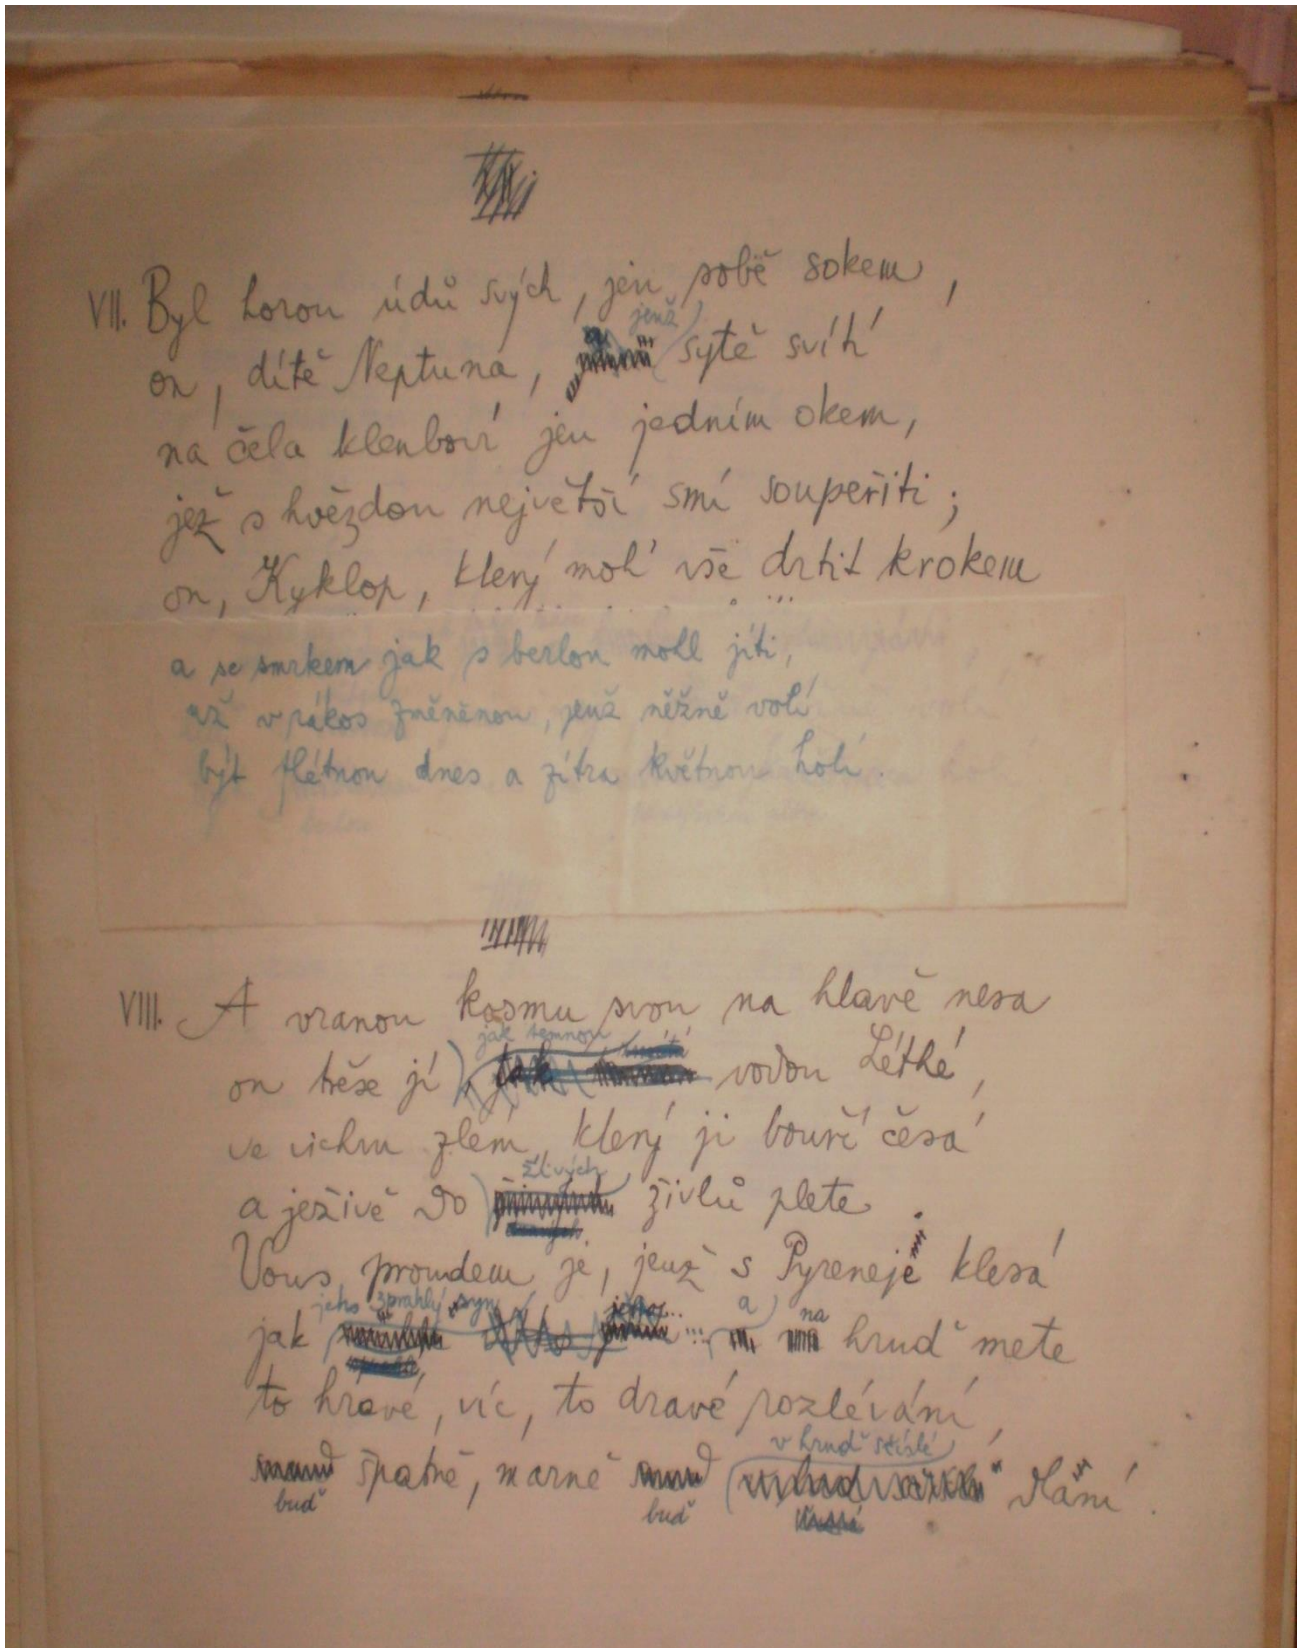 VII. Byl horou údů svých, jen sobě sokem,
jenž
on, dítě Neptuna, sytě svíh'
na čela klenbou jen jedním okem,
jež s hvězdou největší smí soupeřiti;
on, Kyklop, který moh' vše drtit krokem
a se smrkem jak s berlou mohl jíti,
až v rákos změněnou, jenž něžně volí
být flétnou dnes a zítra květnou holí.
VIII. A vranou kosmu svou na hlavě nesa
jak temnou
on třese jí jak vodou Léthé,
ve vichru zlém, který ji bouří česá
lživých
a ježivě do živlů plete.
Vous proudem je, jenž s Pyreneje klesá
jeho zprahlý syn a na
jak hruď mete
to hravé, víc, to dravé rozlévání,
v hruď stislé
špatně, marně dlání.
buď buď